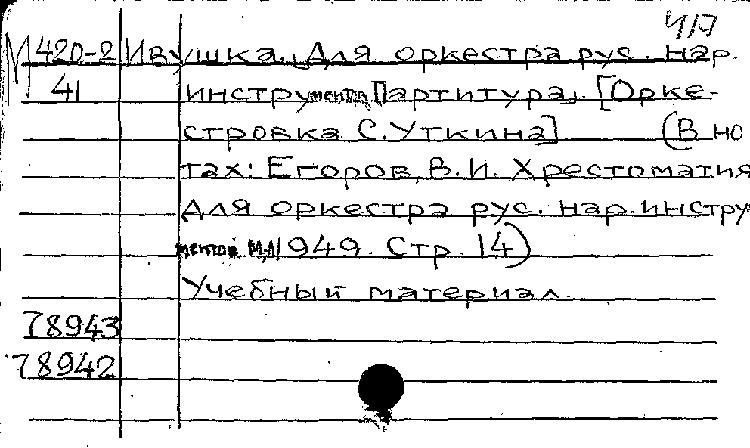 417
М 420-2 Ивушка. Для оркестра рус. нар.
41 инструментов Партитура. [Орке-
стровка С.Уткина] (В но
тах: Егоров, В.И. Хрестоматия
для оркестра рус. нар. инстру
ментов М,Л 1949. Стр. 14)
Учебный материал
78943
78942